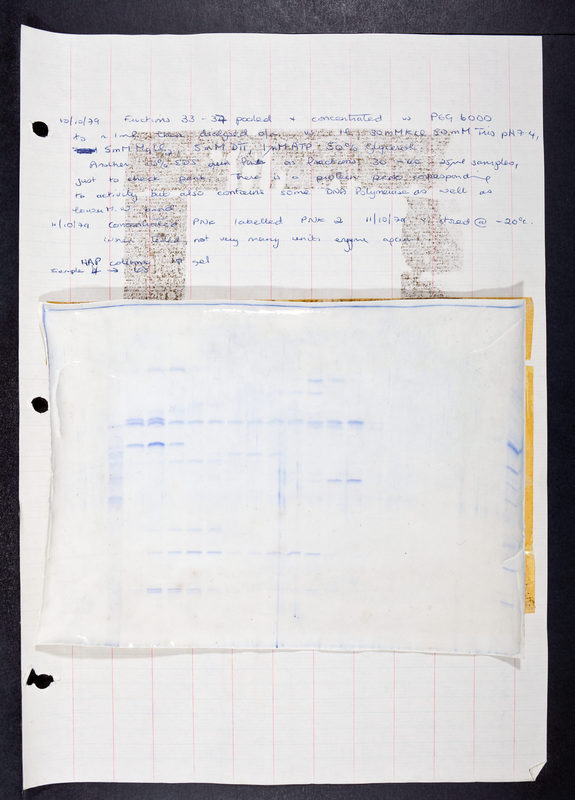 10/10/79 Fractions 33 - 37 pooled + concentrated w P6G 6000
to ~ 1ml, then dialysed 30mM KCl 50mM Tris pH 7.4,
5mM MgCl 5mM DTT, 1mM ATP + 50% glycerol.
Another gel SDS run fractions 30 - 40 25ul samples,
just to check peak. There is a protein peak corresponding
to activity but also contains some DNA Polymerase as well as
lower M.W. bands
11/10/79 Concentrated PNK labelled PNK 2 11/10/79 + stored @ -20°c.
not very many units enzyme again
HAP column gel
sample →